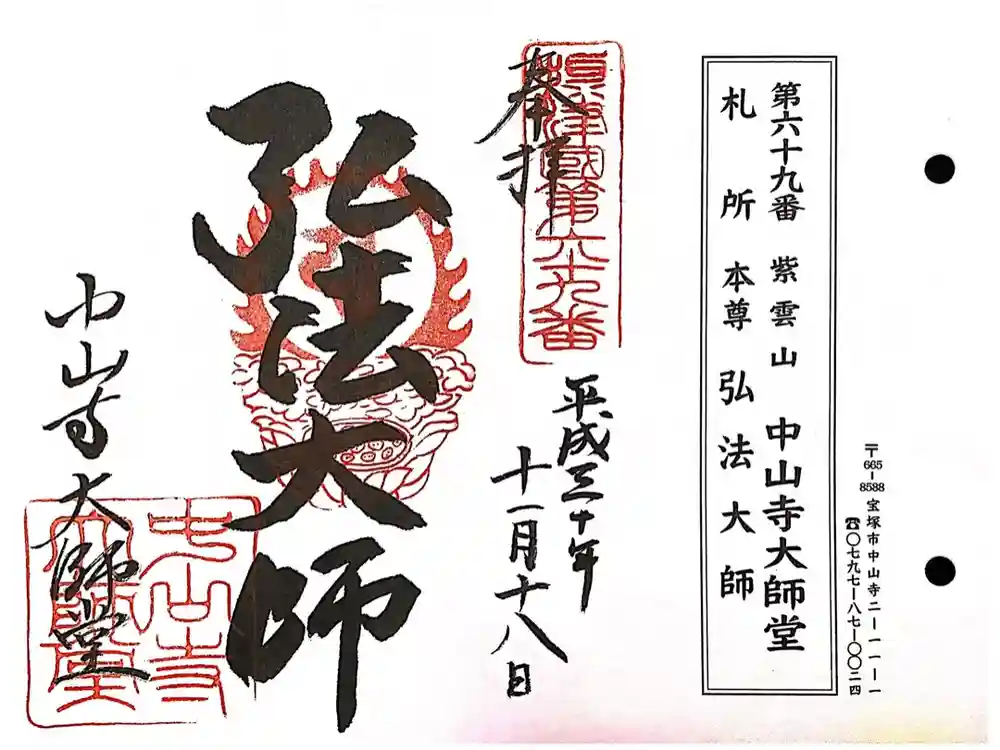 第六十九番 紫雲山 中山寺大師堂
札所本尊 弘法大師
〒665-8588 宝塚市中山寺二ー一一ー一
☎〇七九七ー八七ー〇〇二四
奉拝
摂津國第六十九番
平成三十年
十一月十八日
弘法大師
中山寺大師堂
中山寺
大師堂